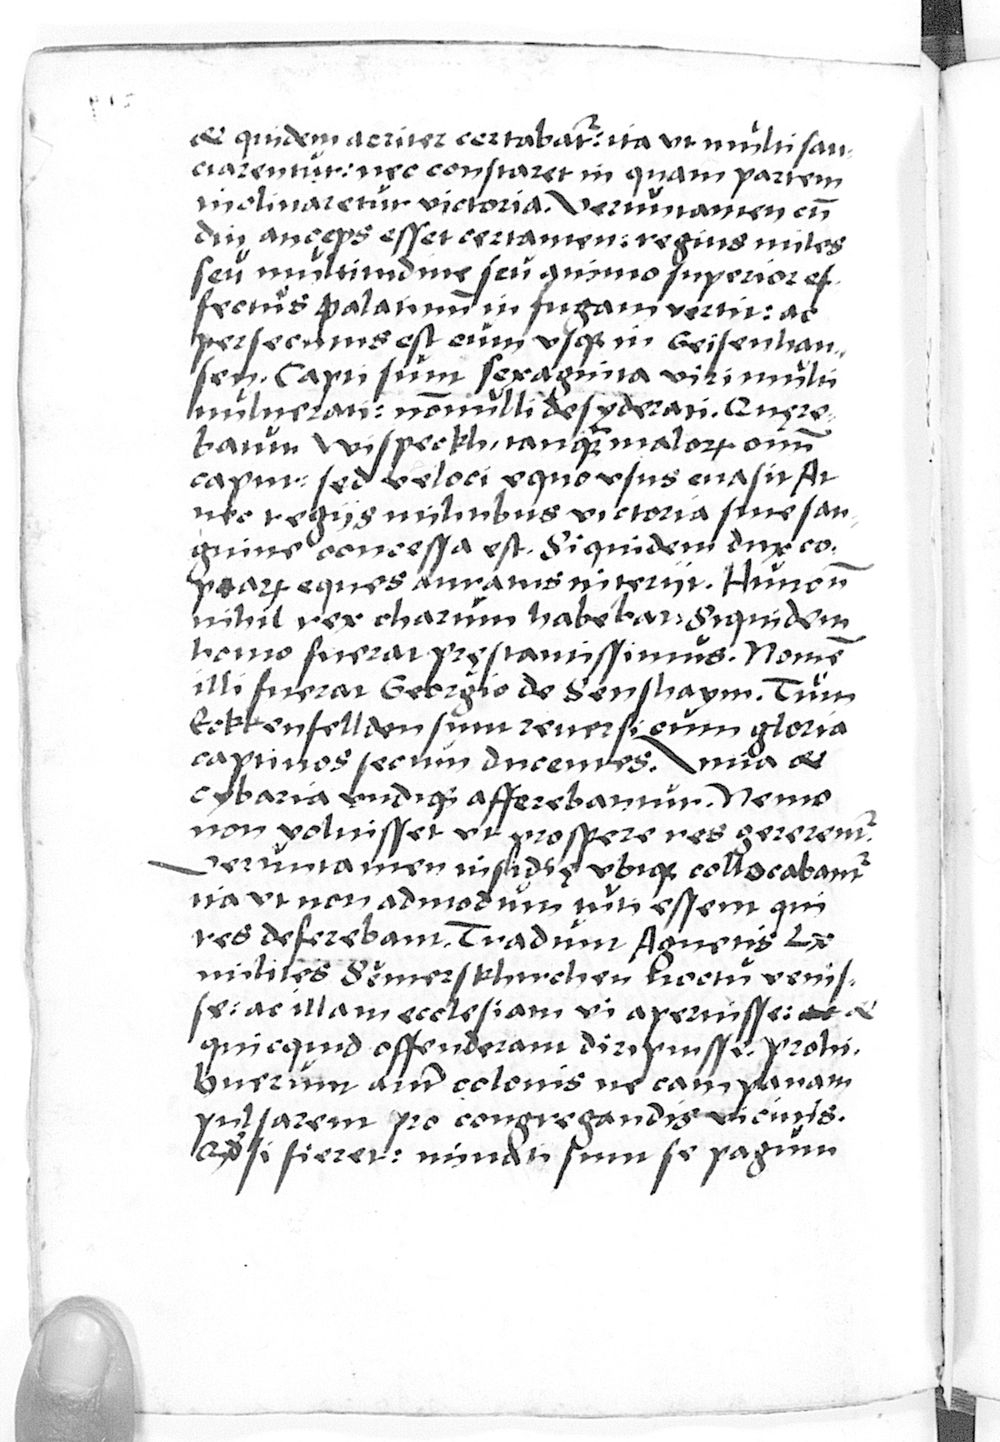 & quidem acriter certabat᷑: ita vt multi sau-
ciarentur: nec constaret in quam partem
inclinaretur victoria. Veruntamen cū
diu anceps esset certamen: regius miles
seu multitudine seu animo superior ef-
fectus Palatinū in fugam vertit: ac
persecutus est eum vsq; in Geisenhau-
sen. Capti sunt sexaginta viri multi
vulnerati: nōnulli desyderati. Quęre-
batur Wispeckh, tanq̃ malorꝝ oīm̄
caput: sed veloci equo vsus euasit At
nec regijs militibus victoria sine san-
guine concessa est. Siquidem dux co-
piarꝝ eques auratus interijt. Hunc n̄
nihil rex charum habebat: Siquidem
homo fuerat pręstantissimus. Nomē
illi fuerat Georgio de Senshaym. Tum
Eckenfellden sunt reuersi cum gloria
captiuos secum ducentes. Vina &
cybaria vndiq; afferebantur. Nemo
non voluisset vt prospere res gererent᷑.
Veruntamen insidię vbiq; collocabant᷑
ita vt non admodum tuti essent qui
res deferebant. Tradunt Agnetis Lx
milites Sūmerskhirchen noctu venis-
se: ac illam ecclesiam vi aperuisse: &
quicquid offenderant diripuisse. Prohi-
buerunt aut̄ colonis ne campanam
pulsarent pro congregandis vicinis.
Qd̓ si fieret: minati sunt se pagum